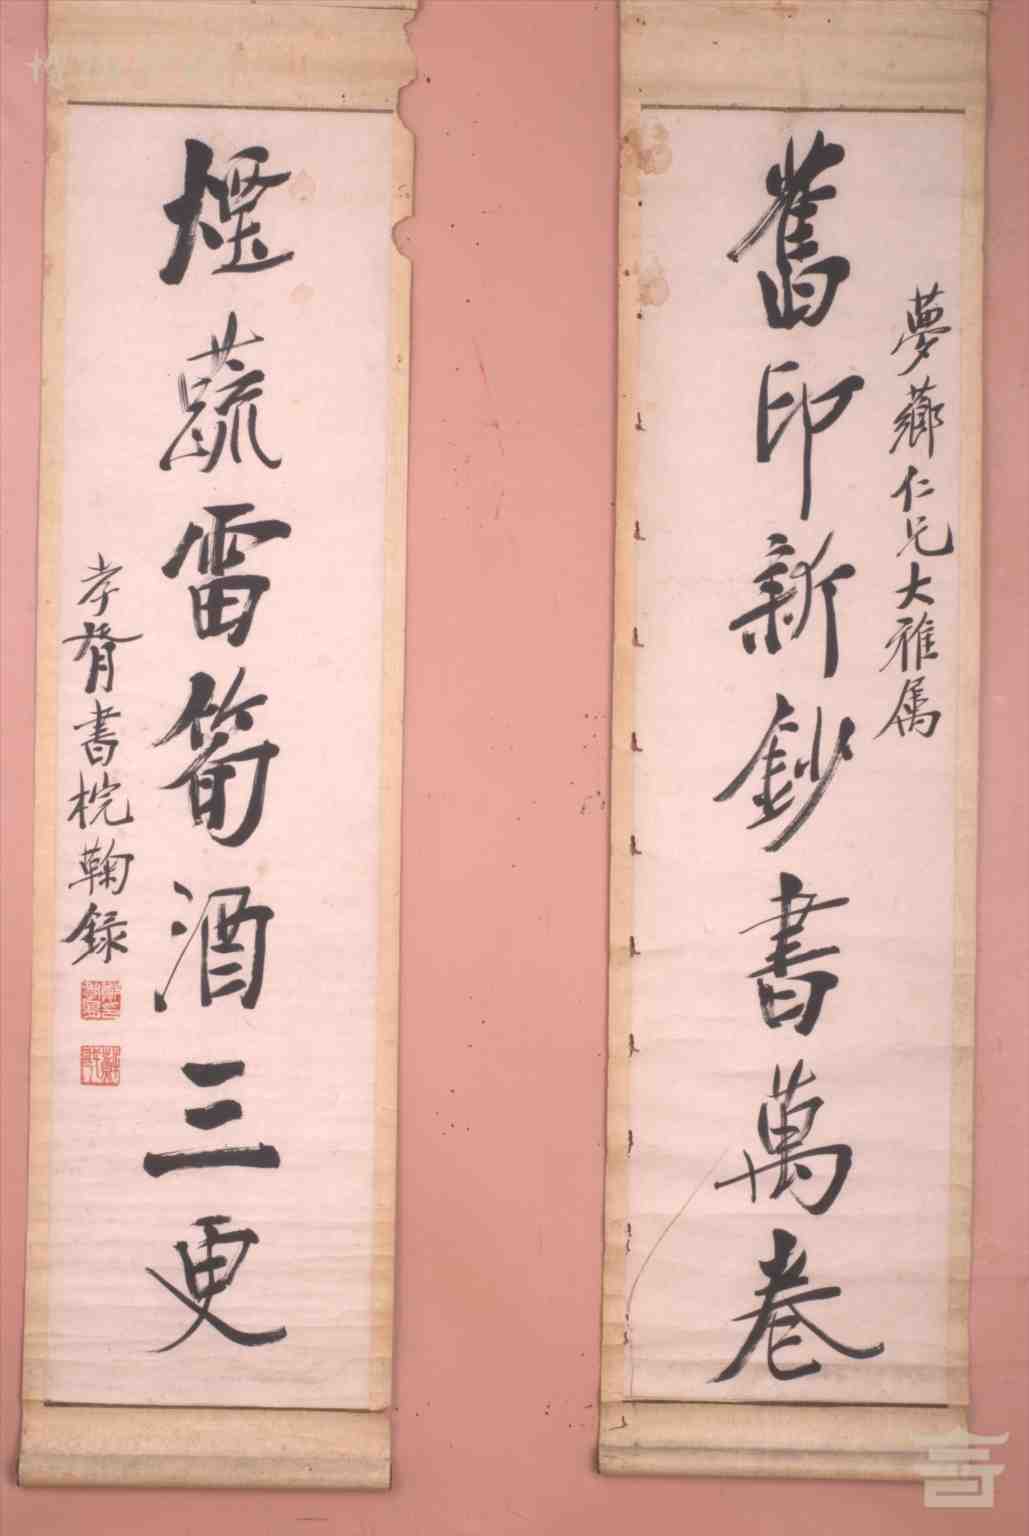 夢薌仁兄大雅属
舊印新鈔書萬卷
煙蔬雷筍酒三更
孝胥書杬鞠録